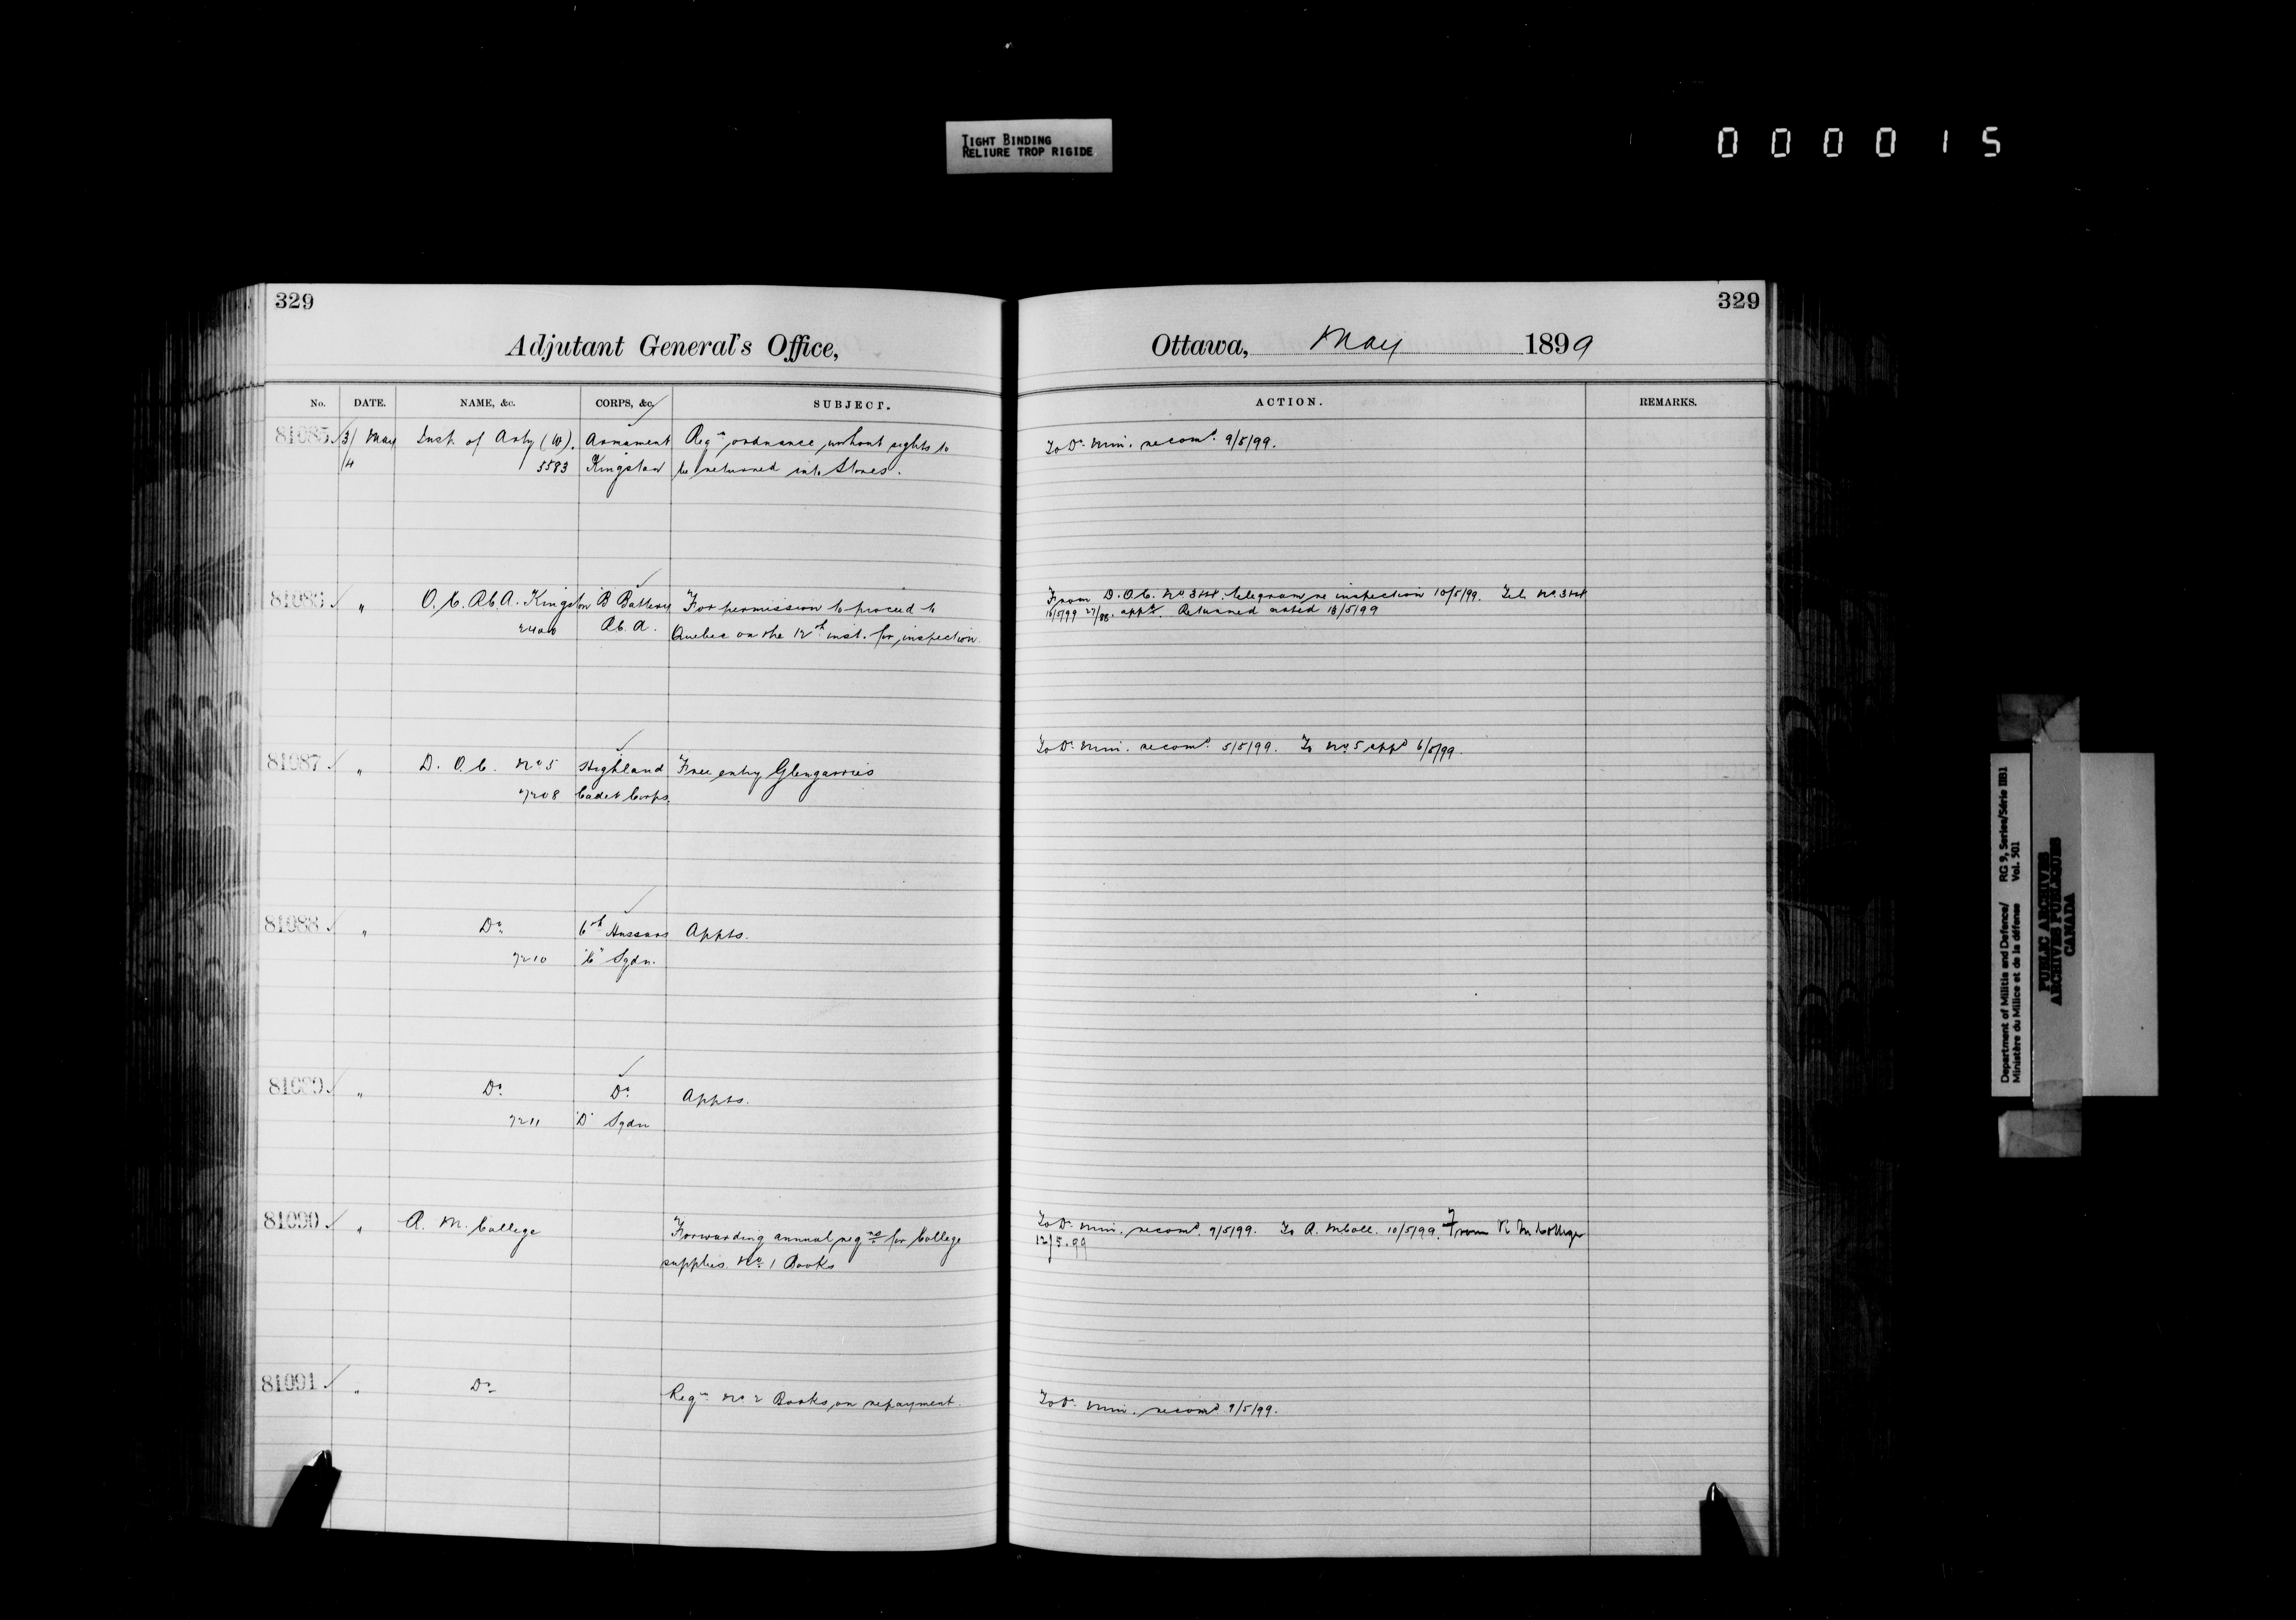 TIGHT BINDING
RELIURE TROP RIGIDE
000015
329
329
Adjutant General's Office,
Ottawa, May 1899
No. DATE. NAME, &c. CORPS, &c. SUBJECT.
ACTION. REMARKS.
81085 3/ May Insp. of Arty (W). Armament Reqn. ordnance without sights to
/4 5583 Kingston be returned into Stores.
To Dr. Min. recomd. 9/5/99.
81086 " O. C. R.C.A. Kingston B Battery For permission to proceed to
2400 R.C.A. Quebec on the 12th inst. for inspection.
From D.O.C. No 3&4 telegram re inspection 10/5/99. Tel. No 3&4
10/5/99 27/88. Returned noted 13/5/99
81087 " D. O. C. No 5 Highland Free entry Glengarries
7208 Cadet Corps.
To Dr. Min. recomd. 5/5/99. To No 5 appd 6/5/99.
81088 " Do. 6th Hussars Appts.
7210 "C" Sqdn.
81089 " Do. Do. Appts.
7211 "D" Sqdn
81090 " R. M. College Forwarding annual reqns for College
supplies No. 1 Books
To Dr. Min. recomd. 9/5/99. To R. M. Coll. 10/5/99. From R M College
12/5.99
81091 " Do. Reqn. No. 2 Books on repayment.
To Dr. Min. recomd 9/5/99.
Department of Militia and Defence/ RG 9, Series/Série IIB1
Ministère du Milice et de la défense Vol. 501
PUBLIC ARCHIVES
ARCHIVES PUBLIQUES
CANADA